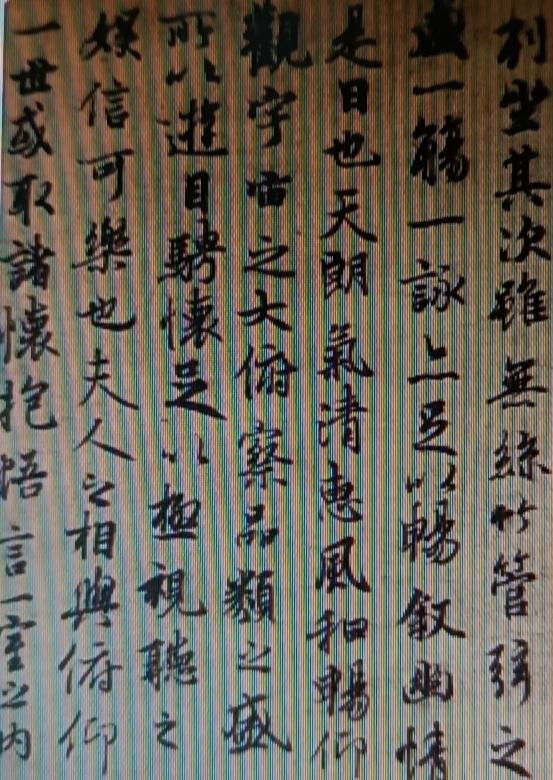 列坐其次雖無絲竹管弦之
盛一觴一詠亦足以暢敘幽情
是日也天朗氣清惠風和暢仰
觀宇宙之大俯察品類之盛
所以遊目騁懷足以極視聽之
娛信可樂也夫人之相與俯仰
一世或取諸懷抱悟言一室之內